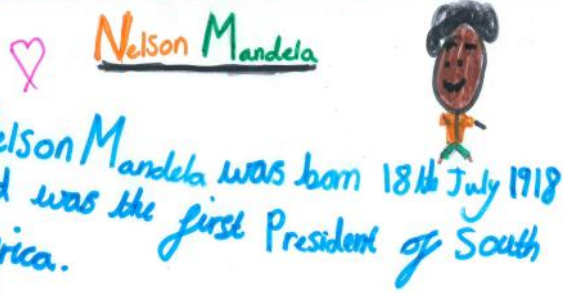 Nelson Mandela
elson Mandela was born 18th July 1918
d was the first President of South
rica.